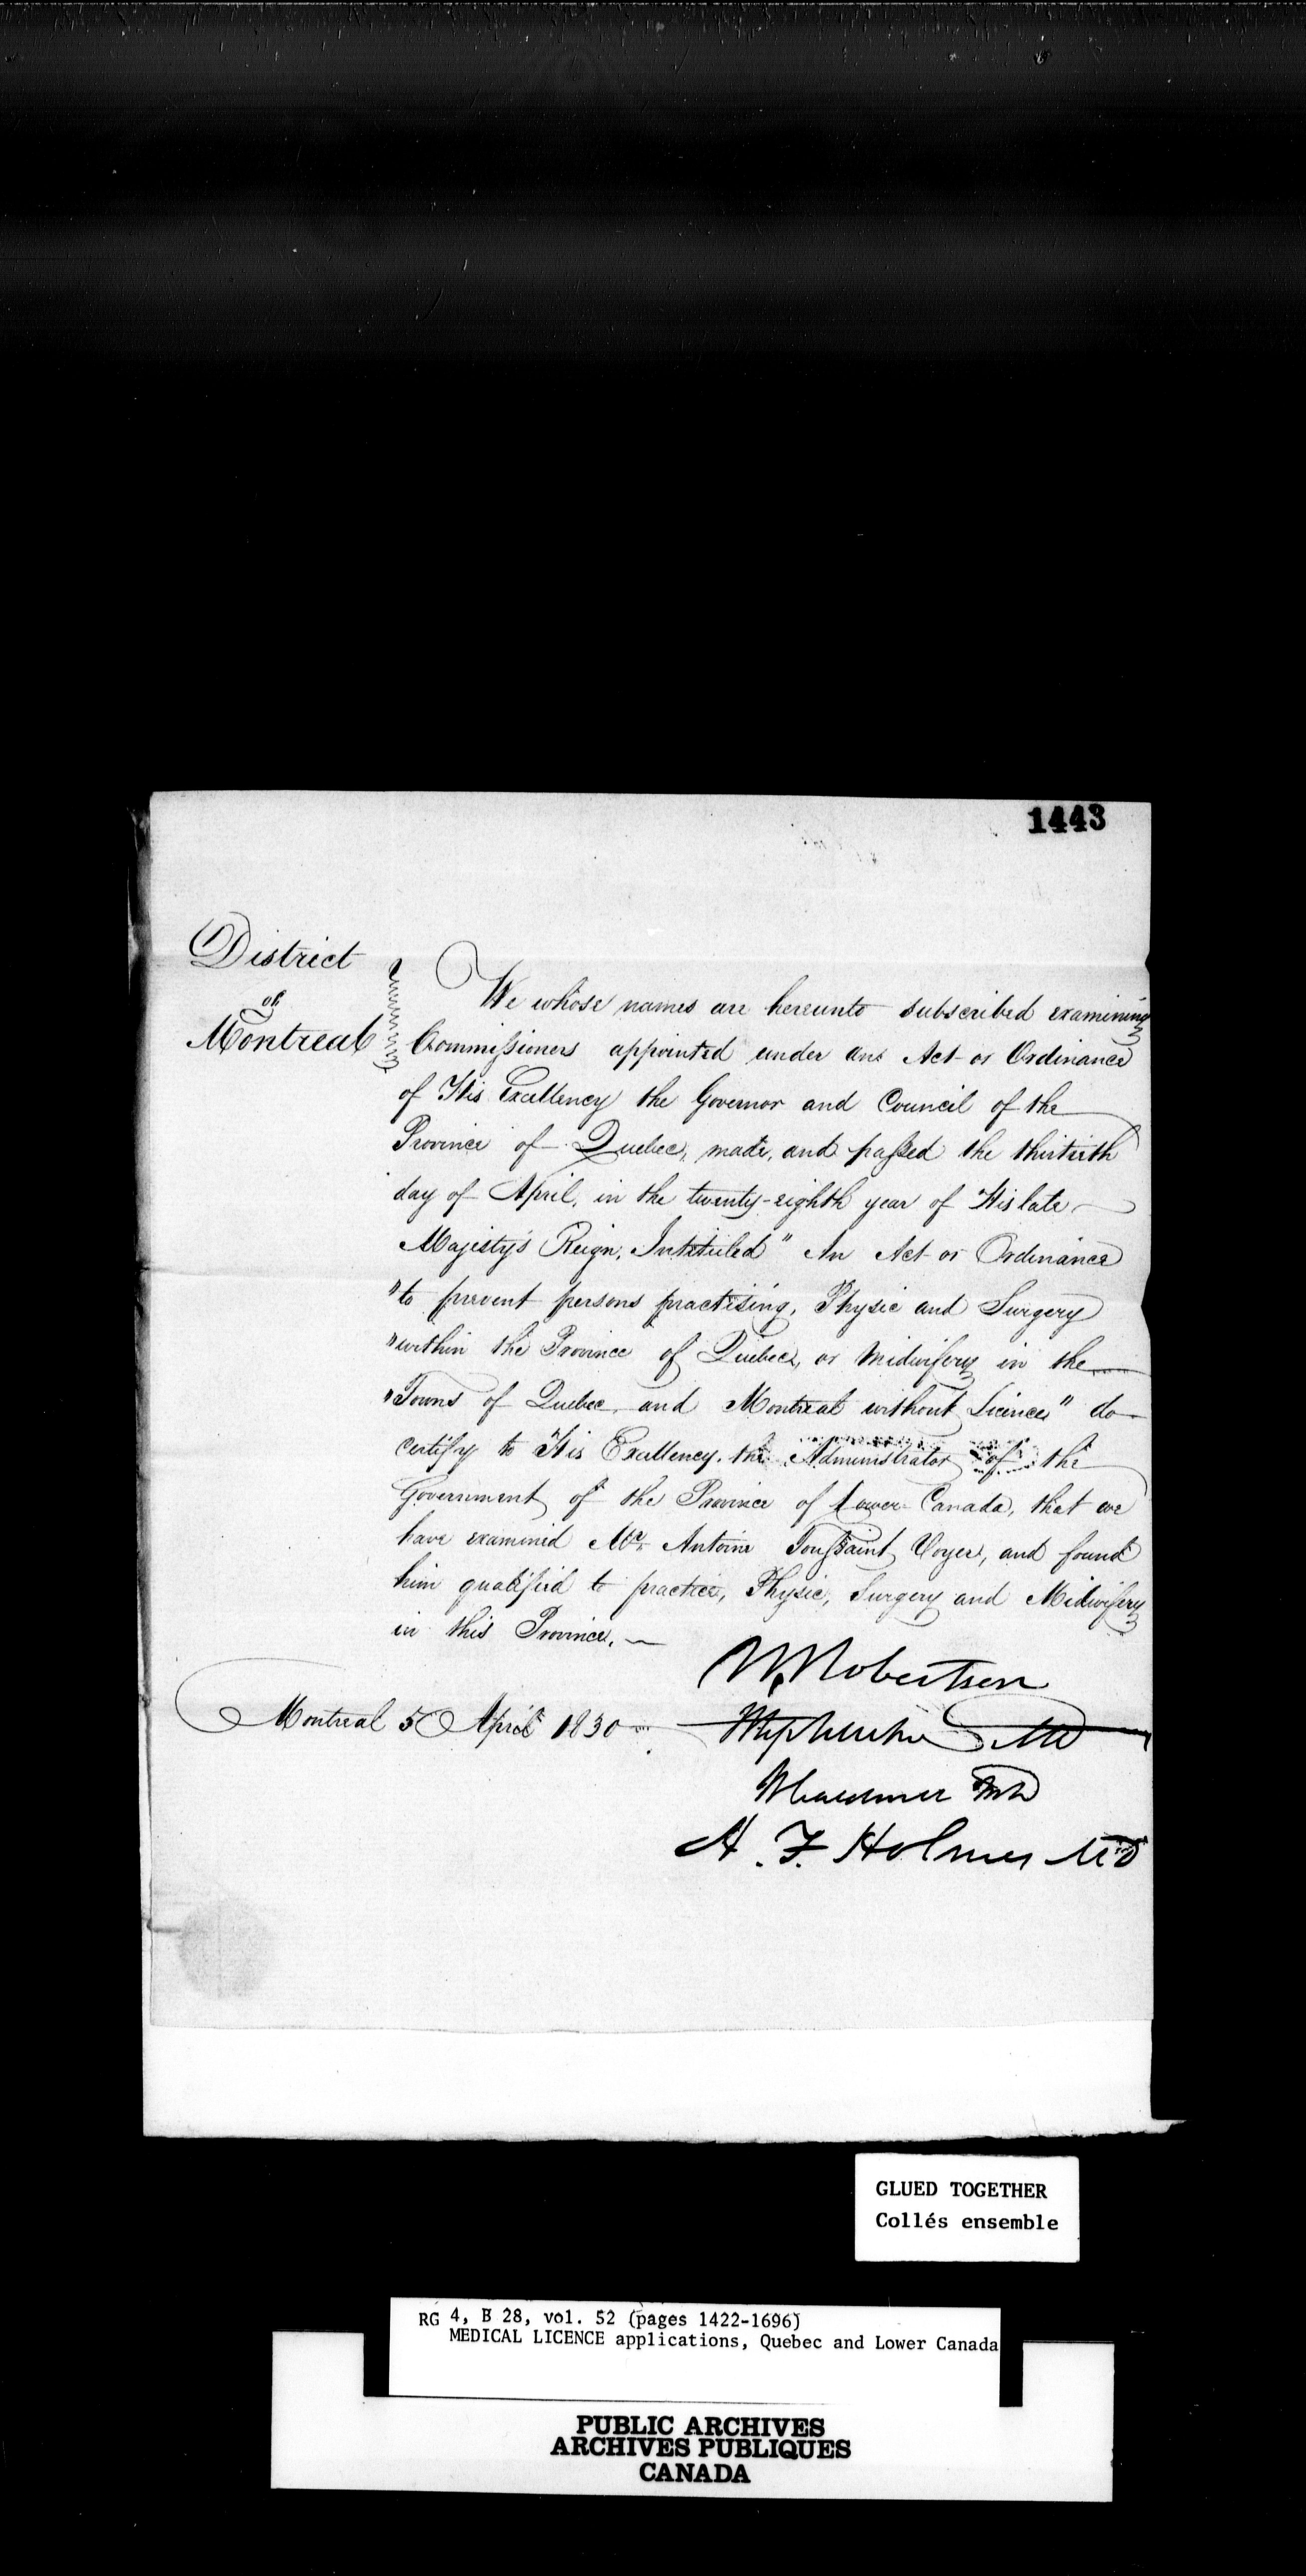 1443
District
of
Montreal
We whose names are hereunto subscribed examining
Commissioners appointed under an Act or Ordinance
of His Excellency the Governor and Council of the
Province of Quebec, made, and passed the thirtieth
day of April, in the twenty-eighth year of His late
Majesty's Reign, Intituled "An Act or Ordinance
"to prevent persons practising, Physic and Surgery
"within the Province of Quebec, or Midwifery in the
"Towns of Quebec and Montreal without Licence" do
certify to His Excellency the Administrator of the
Government of the Province of Lower Canada, that we
have examined Mr. Antoine Toussaint Voyer, and found
him qualified to practice, Physic, Surgery and Midwifery
in this Province.
W Robertson
Montreal 5 April 1830
MD
MD
A. F. Holmes MD
GLUED TOGETHER
Collés ensemble
RG 4, B 28, vol. 52 (pages 1422-1696)
MEDICAL LICENCE applications, Quebec and Lower Canada
PUBLIC ARCHIVES
ARCHIVES PUBLIQUES
CANADA